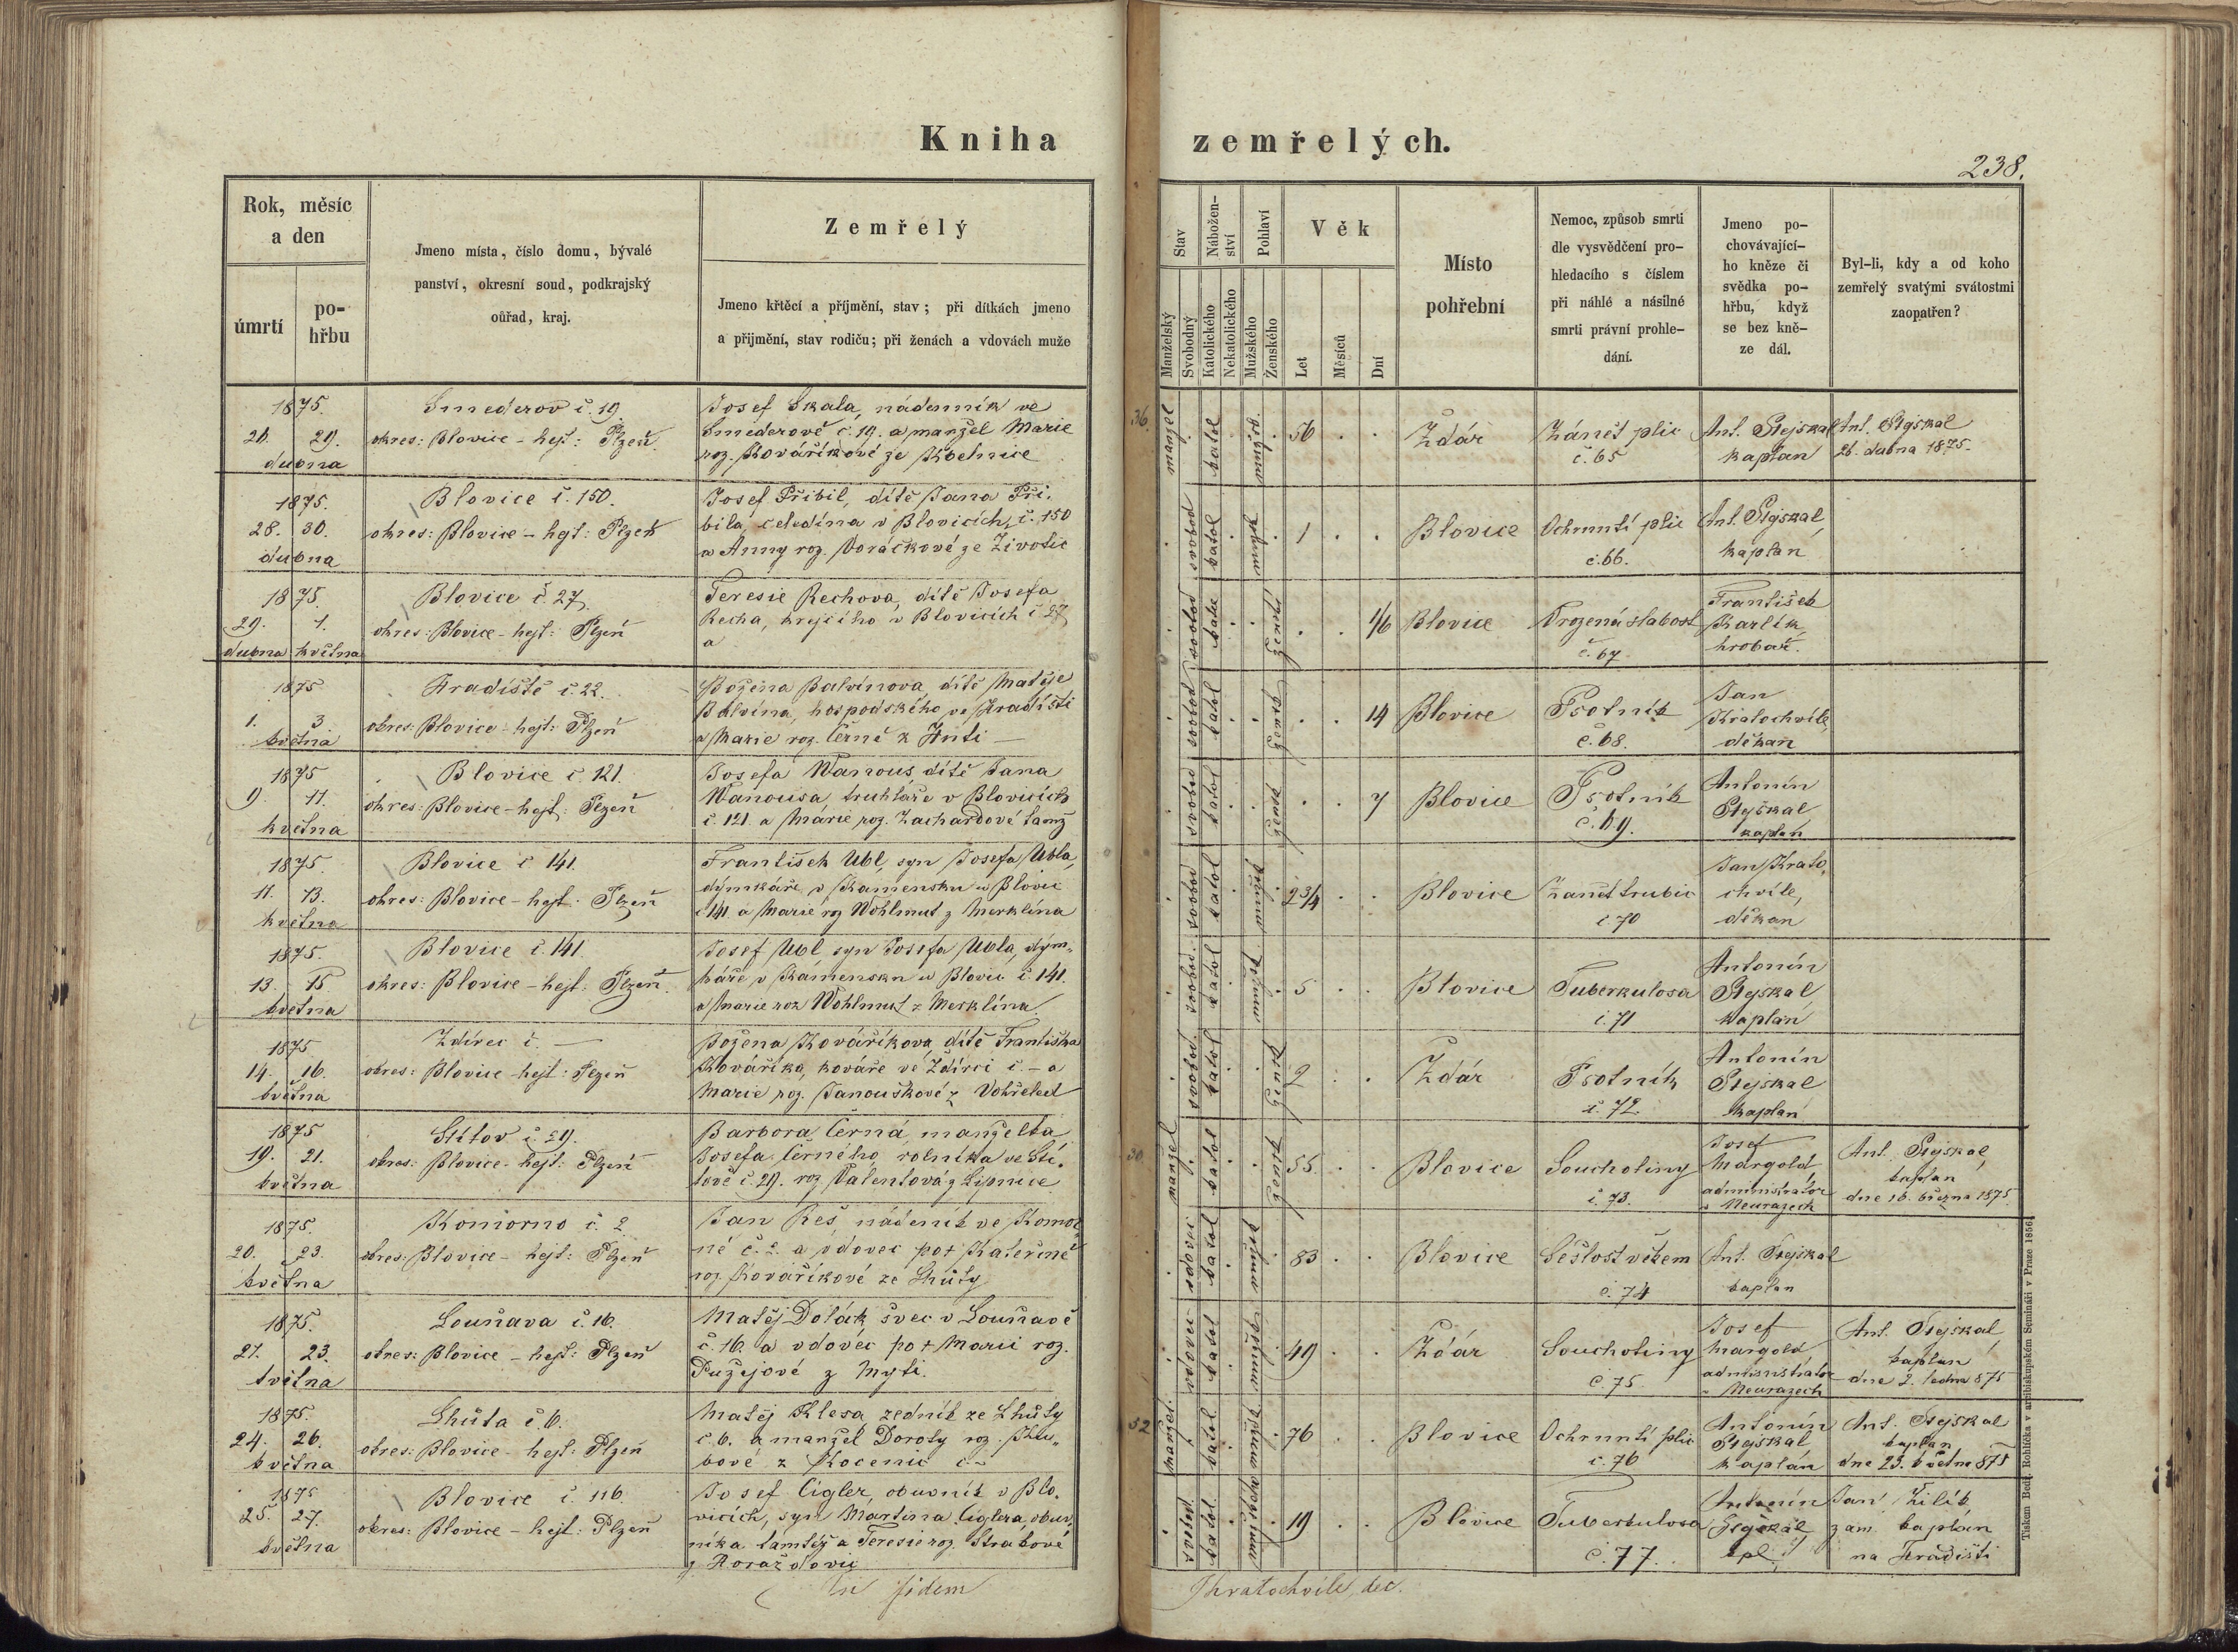 Kniha
zemřelých.
238.
Rok, měsíc
a den
úmrtí
po-
hřbu
Jmeno místa, číslo domu, bývalé
panství, okresní soud, podkrajský
oůřad, kraj.
Zemřelý
Jmeno křtěcí a příjmění, stav; při dítkách jmeno
a přijmění, stav rodičů; při ženách a vdovách muže
Stav
Manželský
Svobodný
Nábožen-
ství
Katolického
Nekatolického
Pohlaví
Mužského
Ženského
Věk
Let
Měsíců
Dní
Místo
pohřební
Nemoc, způsob smrti
dle vysvědčení pro-
hledacího s číslem
při náhlé a násilné
smrti právní prohle-
dání.
Jmeno po-
chovávající-
ho kněze či
svědka po-
hřbu, když
se bez kně-
ze dál.
Byl-li, kdy a od koho
zemřelý svatými svátostmi
zaopatřen?
1875.
26. 29.
dubna
Smederov č. 19.
okres: Blovice - hejt: Plzeň
Josef Skala, nádenník ve
Smederově č. 19. a manžel Marie
roz. Kováříkové ze
36.
manžel
katol
mužsk.
56
Ždár
Zánět plic
č. 65
Ant. Stejskal
kaplan
Ant. Stejskal
26. dubna 1875.
1875.
28. 30.
dubna
Blovice č. 150.
okres: Blovice - hejt: Plzeň
Josef Přibil, dítě Jana Při-
bila, čeledína v Blovicích, č. 150
a Anny roz. Voráčkové ze Životic
svobod
katol
1
Blovice
Ochrnutí plic
č. 66.
Ant. Stejskal,
kaplan
1875.
29. 1.
dubna května
Blovice č. 27.
okres: Blovice - hejt: Plzeň
Teresie Rechova, dítě Josefa
Recha, krejčího v Blovicích č 27
a
svobod
1/6
Blovice
Vrozená slabost
č. 67
František
Karlík,
hrobař.
1875
1. 3
května
Hradiště č. 22.
okres: Blovice - hejt: Plzeň
Božena Balvínova, dítě Matěje
Balvína, hospodského ve Hradišti
a Marie roz. Černé z
svobod
katol
14
Blovice
Psotník
č. 68.
Jan
Kratochvíle,
děkan
1875
9. 11.
května
Blovice č. 121.
okres: Blovice - hejt: Plzeň
Josefa Wanous, dítě Jana
Wanousa, truhláře v Blovicích
č. 121. a Marie roz. Zachardové tamž
svobod
katol
7
Blovice
Psotník
č. 69.
Antonín
Stejskal
kaplan
1875.
11. 13.
května
Blovice č 141.
okres: Blovice - hejt: Plzeň
František Ubl, syn Josefa Ubla,
dýmkáře v Kamensku u Blovic
č 141. a Marie roz Wohlmut z Merklína
svobod
katol
2 3/4
Blovice
Zánět trubic
č 70
Jan Krato-
chvíle,
děkan
1875.
13. 15.
května
Blovice č. 141.
okres: Blovice - hejt: Plzeň.
Josef Ubl, syn Josefa Ubla, dým-
káře v Kamensku u Blovic č. 141.
a Marie roz Wohlmut z Merklína.
svobod.
katol
5
Blovice
Tuberkulosa
č. 71
Antonín
Stejskal,
kaplan
1875.
14. 16.
května
Zdírec č. —
okres: Blovice - hejt: Plzeň
Božena Kováříkova, dítě Františka
Kováříka, kováře ve Zdírci č. - a
Marie roz. Janouškové z Vohřeled
svobod.
katol
2
Ždár
Psotník
č. 72.
Antonín
Stejskal
kaplan
1875
19. 21.
května
Stítov č. 29.
okres: Blovice - hejt: Plzeň
Barbora Černá, manželka
Josefa Černého, rolníka ve Stí-
tově č. 29. roz. Valentová z Lipnice
30.
manžel
katol
55.
Blovice
Souchotiny
č. 73.
Josef
Margold,
administrator
v Neurazech
Ant. Stejskal,
kaplan
dne 16. března 1875.
1875.
20. 23.
května
Komorno č. 2
okres: Blovice - hejt: Plzeň
Jan Reš, nádeník ve Komor-
ně č. 2. a vdovec po + Kateřině
roz. Kováříkové ze Lhůty
vdovec
katol
83
Blovice
Sešlost věkem
č. 74
Ant. Stejskal
kaplan
1875.
21. 23.
května
Louňava č. 16.
okres: Blovice - hejt: Plzeň
Matěj Dolák, švec v Louňavě
č. 16. a vdovec po + Marii roz.
Pužejové z Mýti.
vdovec
katol
49
Ždár
Souchotiny
č 75
Josef
Margold,
administrator
v Neurazech
Ant. Stejskal,
kaplan
dne 2. ledna 875
1875.
24. 26.
května
Lhůta č 6.
okres: Blovice - hejt: Plzeň
Matěj Klesa, zedník ze Lhůty
č. 6. a manžel Doroty roz.
bové z č -
52
manžel.
katol.
76
Blovice
Ochrnutí plic
č. 76
Antonín
Stejskal
kaplán
Ant. Stejskal
kaplan
dne 23. května 875
1875
25. 27.
května
Blovice č. 116.
okres: Blovice - hejt: Plzeň
Josef Cigler, obuvník v Blo-
vicích, syn Martina Ciglera, obuv-
níka tamtéž a Teresie roz. Strakové
z Horažďovic
svobod.
katol.
19
Blovice
Tuberkulosa
č. 77.
Antonín
Stejskal,
kpl.
Jan Žilík,
zám. kaplán
na Hradišti
In fidem
JKratochvíle, dec.
Tiskem Bedř. Rohlíčka v arcibiskupském Semináři v Praze 1856.